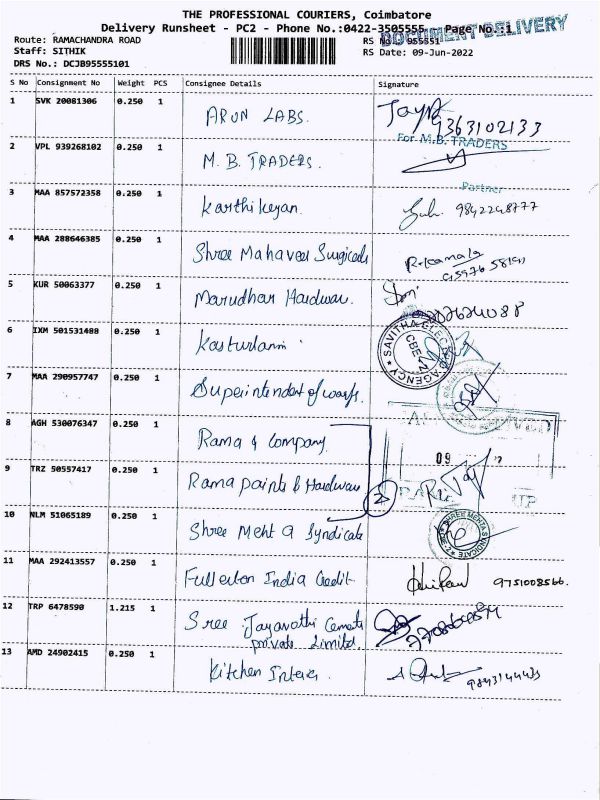 THE PROFESSIONAL COURIERS, Coimbatore
Delivery Runsheet - PC2 - Phone No.:0422-3505555 Page No.:1
DOCUMENT DELIVERY
Route: RAMACHANDRA ROAD RS No.: 955551
Staff: SITHIK RS Date: 09-Jun-2022
DRS No.: DCJB95555101
S No Consignment No Weight PCS Consignee Details Signature
1 SVK 20081306 0.250 1 ARUN LABS. 9363102133
For M.B. TRADERS
2 VPL 939268102 0.250 1 M.B. TRADERS.
Partner
3 MAA 857572358 0.250 1 Karthikeyan. 9842248777
4 MAA 288646385 0.250 1 Shree Mahaveer Surgicals
5 KUR 50063377 0.250 1 Marudhar Hardware.
6 IXM 501531488 0.250 1 SAVITHA AGENCY CBE
7 MAA 290957747 0.250 1 Superintendent of
8 AGH 530076347 0.250 1 Rama & Company.
09
9 TRZ 50557417 0.250 1 Rama paints & Hardware 2
10 NLM 51065189 0.250 1 Shree Mehta Syndicate SHREE MEHTA SYNDICATE
11 MAA 292413557 0.250 1 Fullerton India Credit 9751008566.
12 TRP 6478590 1.215 1 Sree Jayavathi Cements
private Limited.
13 AMD 24902415 0.250 1 Kitchen 9843144433